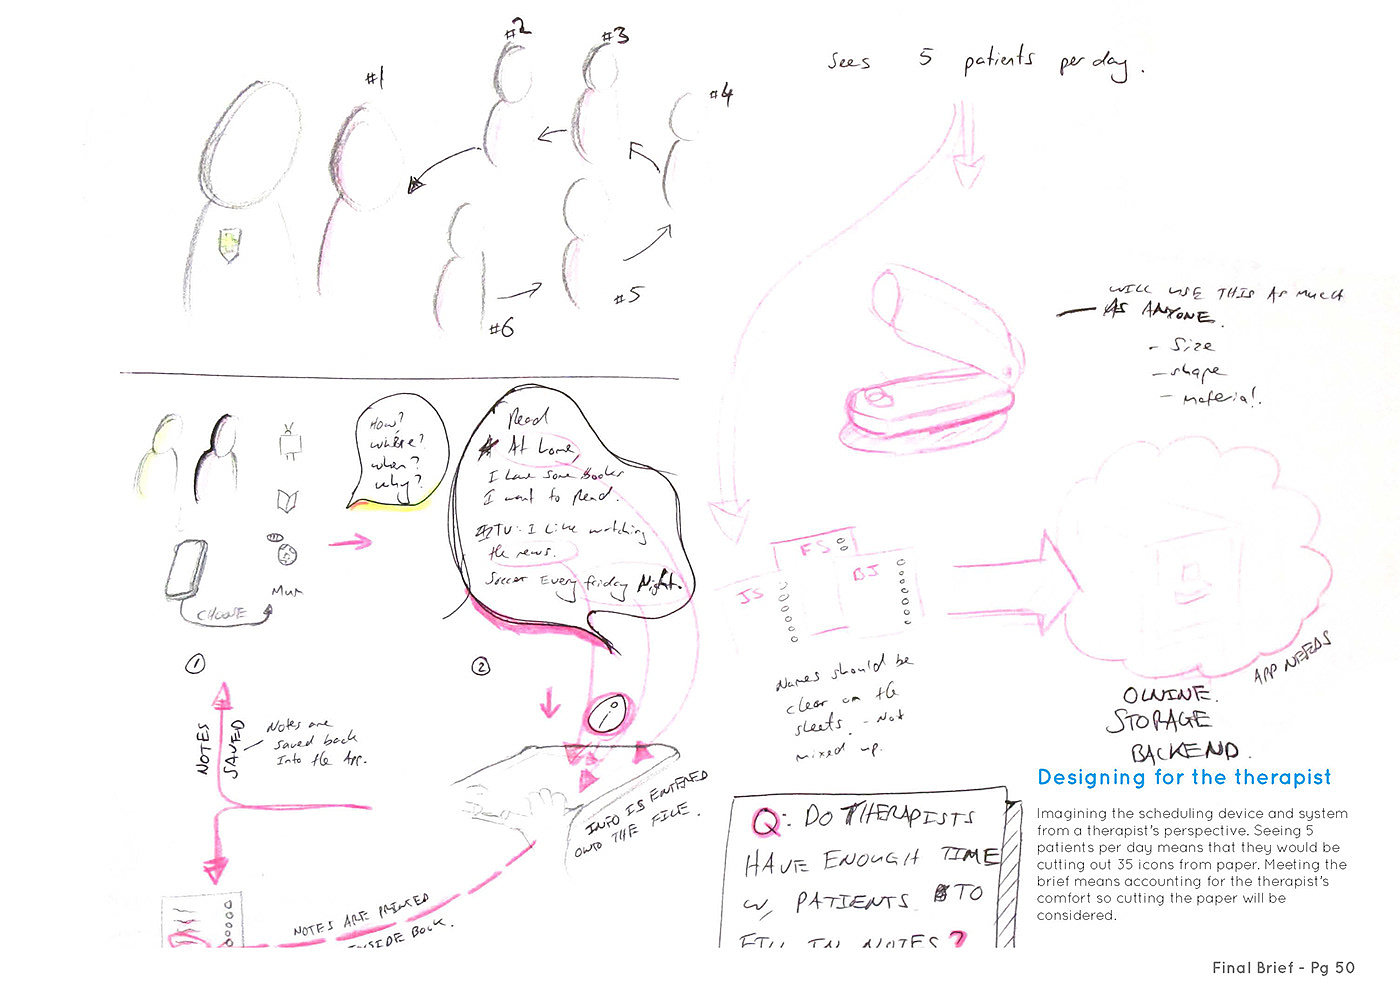 #1
#2
#3
#4
#5
#6
Sees 5 patients per day.
WILL USE THIS AS MUCH
AS ANYONE.
- Size
- shape
- Material.
How?
where?
when?
why?
Read
At home,
I have some Books
I want to Read.
TV: I Like watching
the news.
Soccer Every friday Night.
CHOOSE
1
2
NOTES
SAVED
Notes are
saved back
Into the App.
i
INFO IS ENTERED
ONTO THE FILE.
NOTES ARE PRINTED
INSIDE BOOK.
JS
FS
BJ
Names should be
clear on the
sheets - Not
mixed up.
APP NEEDS
ONLINE
STORAGE
BACKEND.
Q: DO THERAPISTS
HAVE ENOUGH TIME
W/ PATIENTS TO
FILL IN NOTES?
Designing for the therapist
Imagining the scheduling device and system
from a therapist's perspective. Seeing 5
patients per day means that they would be
cutting out 35 icons from paper. Meeting the
brief means accounting for the therapist's
comfort so cutting the paper will be
considered.
Final Brief - Pg 50